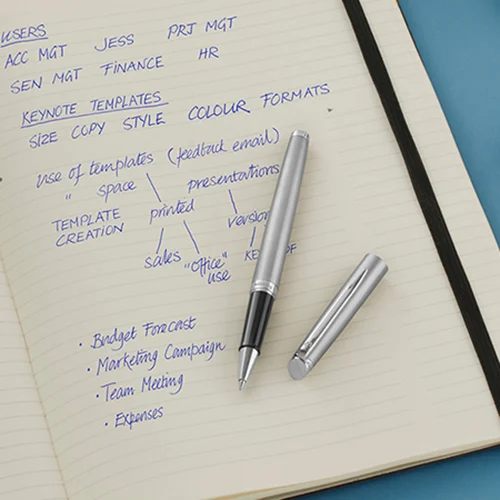 USERS
ACC MGT JESS PRJ MGT
SEN MGT FINANCE HR
KEYNOTE TEMPLATES
SIZE COPY STYLE COLOUR FORMATS
use of templates (feedback email)
" space presentations
TEMPLATE CREATION printed version
sales "office" use
• Budget Forecast
• Marketing Campaign
• Team Meeting
• Expenses